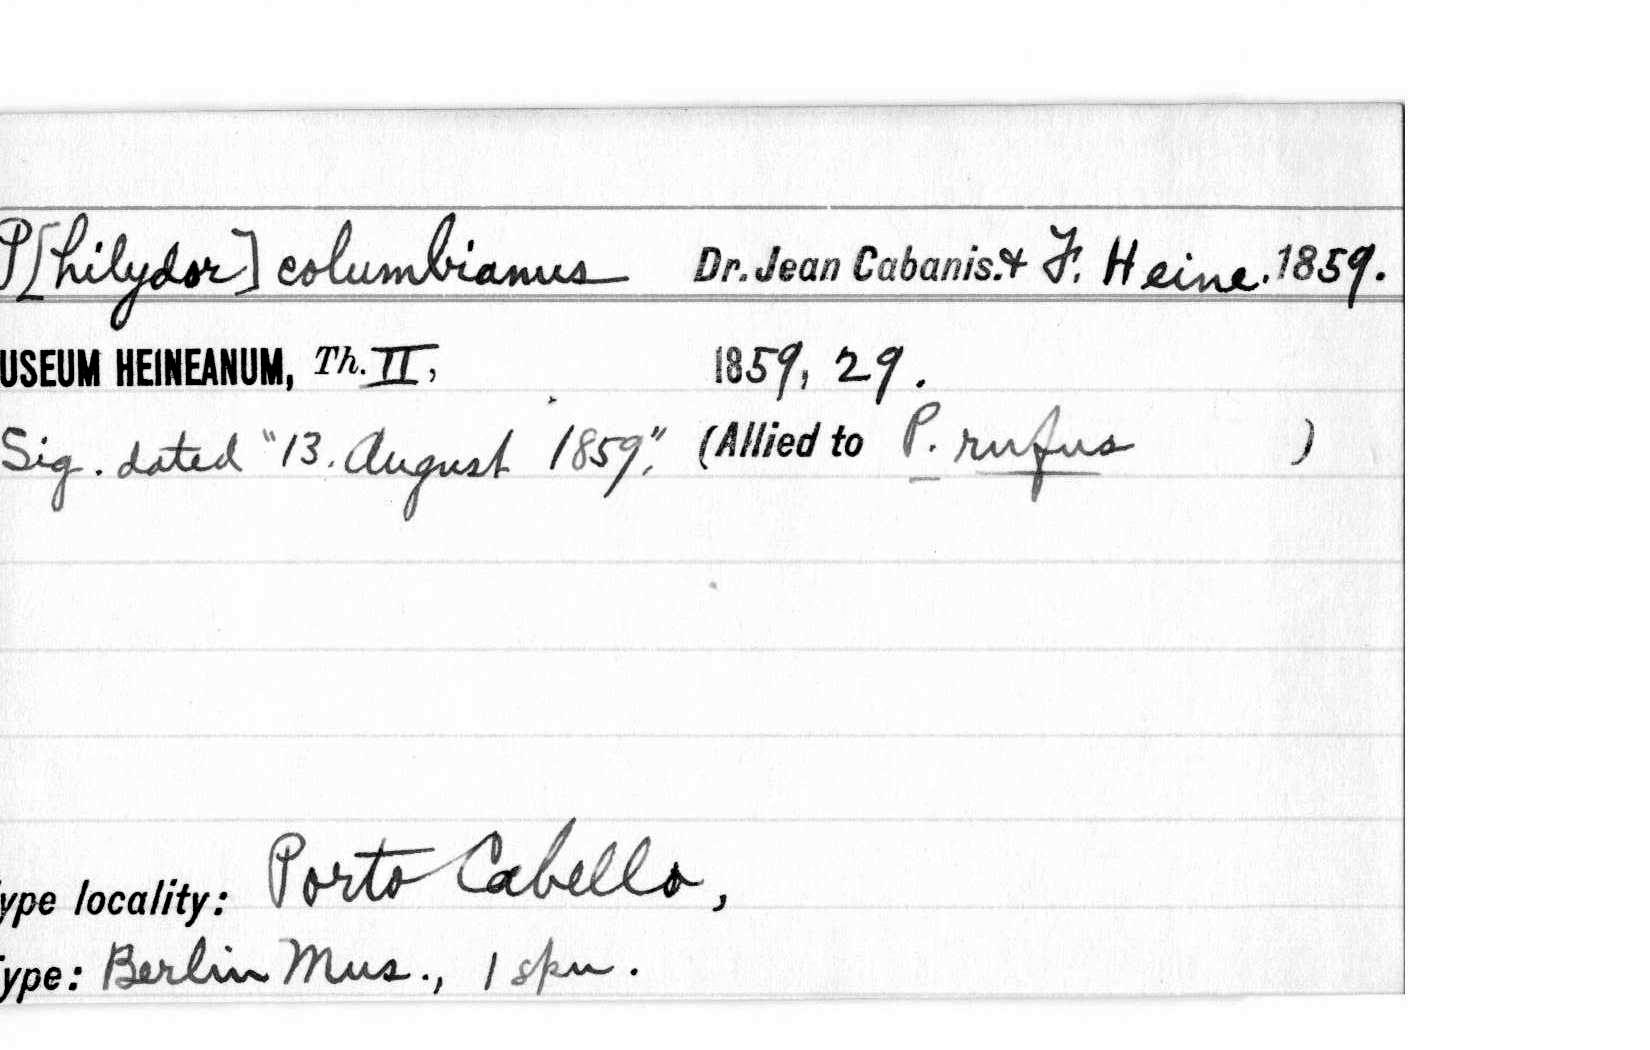 P[hilydor] columbianus Dr. Jean Cabanis. & F. Heine. 1859.
USEUM HEINEANUM, Th. II, 1859, 29.
Sig. dated "13. August 1859", (Allied to P. rufus )
ype locality: Porto Cabello,
ype: Berlin Mus., 1 spn.